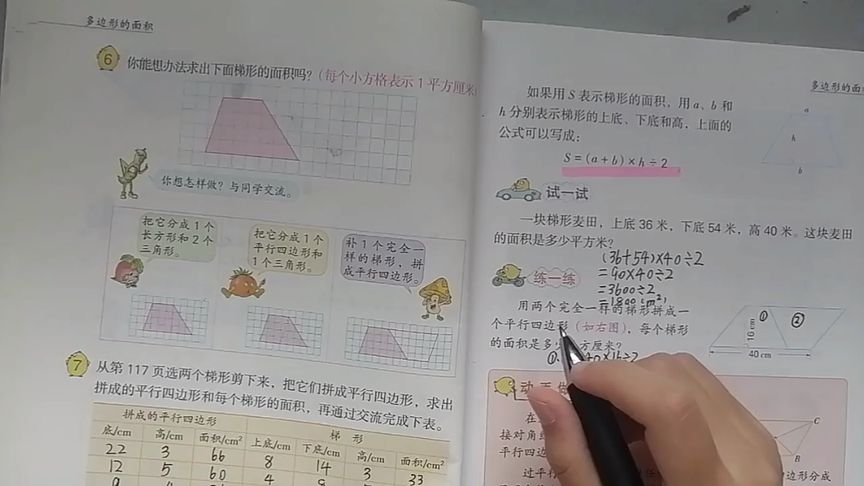 多边形的面积
6 你能想办法求出下面梯形的面积吗？（每个小方格表示 1 平方厘米
你想怎样做？与同学交流。
把它分成 1 个
长方形和 2 个
三角形。
把它分成 1 个
平行四边形和
1 个三角形。
补 1 个完全一
样的梯形，拼
成平行四边形。
7 从第 117 页选两个梯形剪下来，把它们拼成平行四边形，求出
拼成的平行四边形和每个梯形的面积，再通过交流完成下表。
拼成的平行四边形 梯 形
底/cm 高/cm 面积/cm² 上底/cm 下底/cm 高/cm 面积/cm²
22 3 66 8 14 3 33
12 5 60 4
多边形的面
如果用 S 表示梯形的面积，用 a、b 和
h 分别表示梯形的上底、下底和高，上面的
公式可以写成：
S = (a + b) × h ÷ 2
a
h
b
试一试
一块梯形麦田，上底 36 米，下底 54 米，高 40 米。这块麦田
的面积是多少平方米？
(36+54)×40÷2
=90×40÷2
=3600÷2
=1800(m²)
练一练
用两个完全一样的梯形拼成一
个平行四边形（如右图），每个梯形
的面积是多少方厘米？
① ②
16 cm
40 cm
①40×16÷2
动手
在
接对角
平行四边
C
B
过平行
边形分成